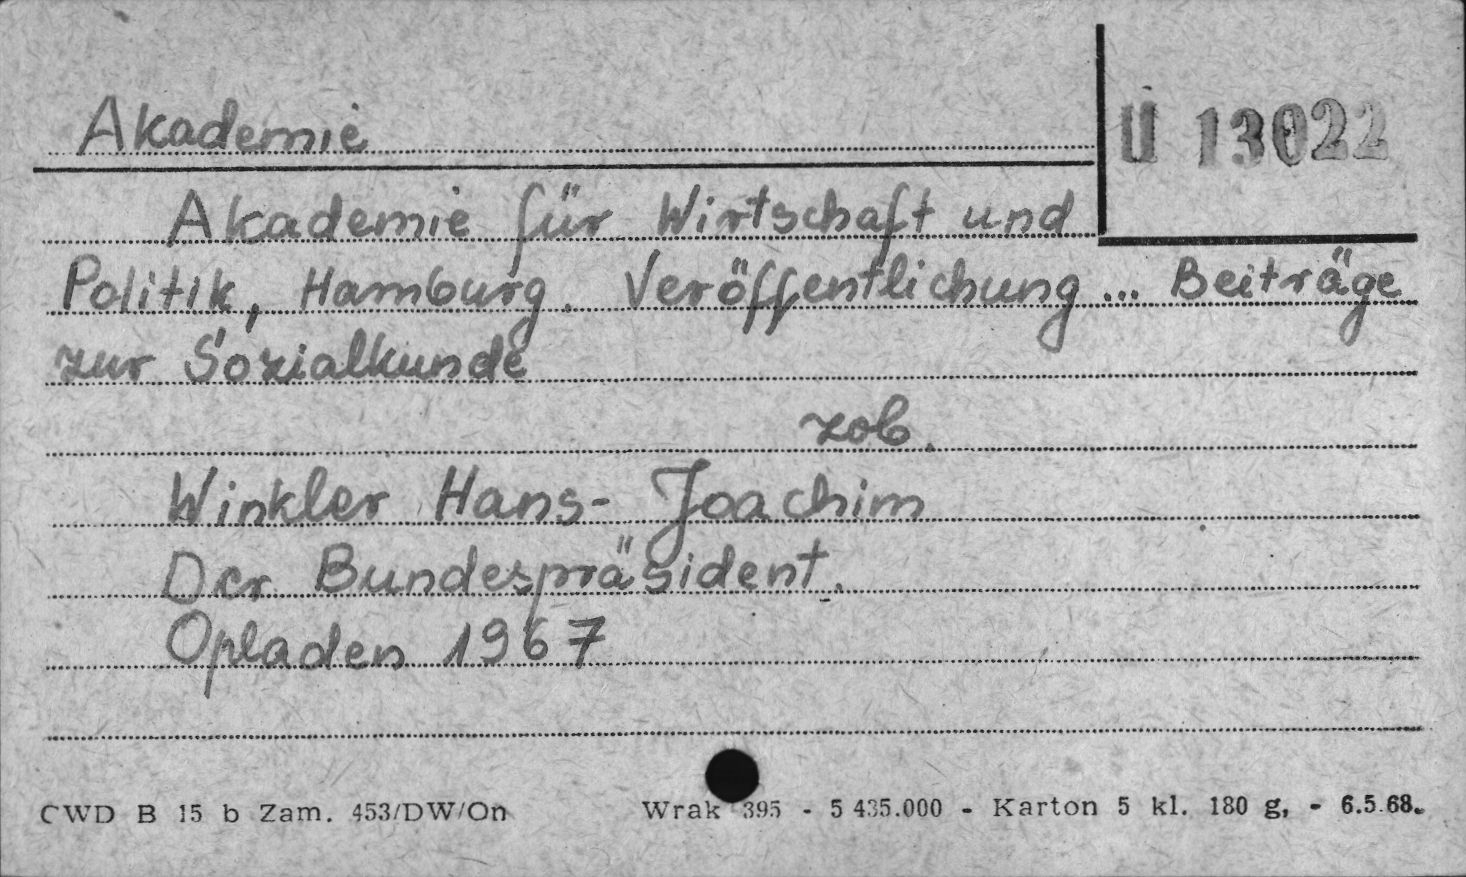 Akademie
U 13022
Akademie für Wirtschaft und
Politik, Hamburg. Veröffentlichung... Beiträge
zur Sozialkunde
zob.
Winkler Hans-Joachim
Der Bundespräsident.
Opladen 1967
CWD B 15 b Zam. 453/DW/On Wrak 395 - 5 435.000 - Karton 5 kl. 180 g, - 6.5.68.